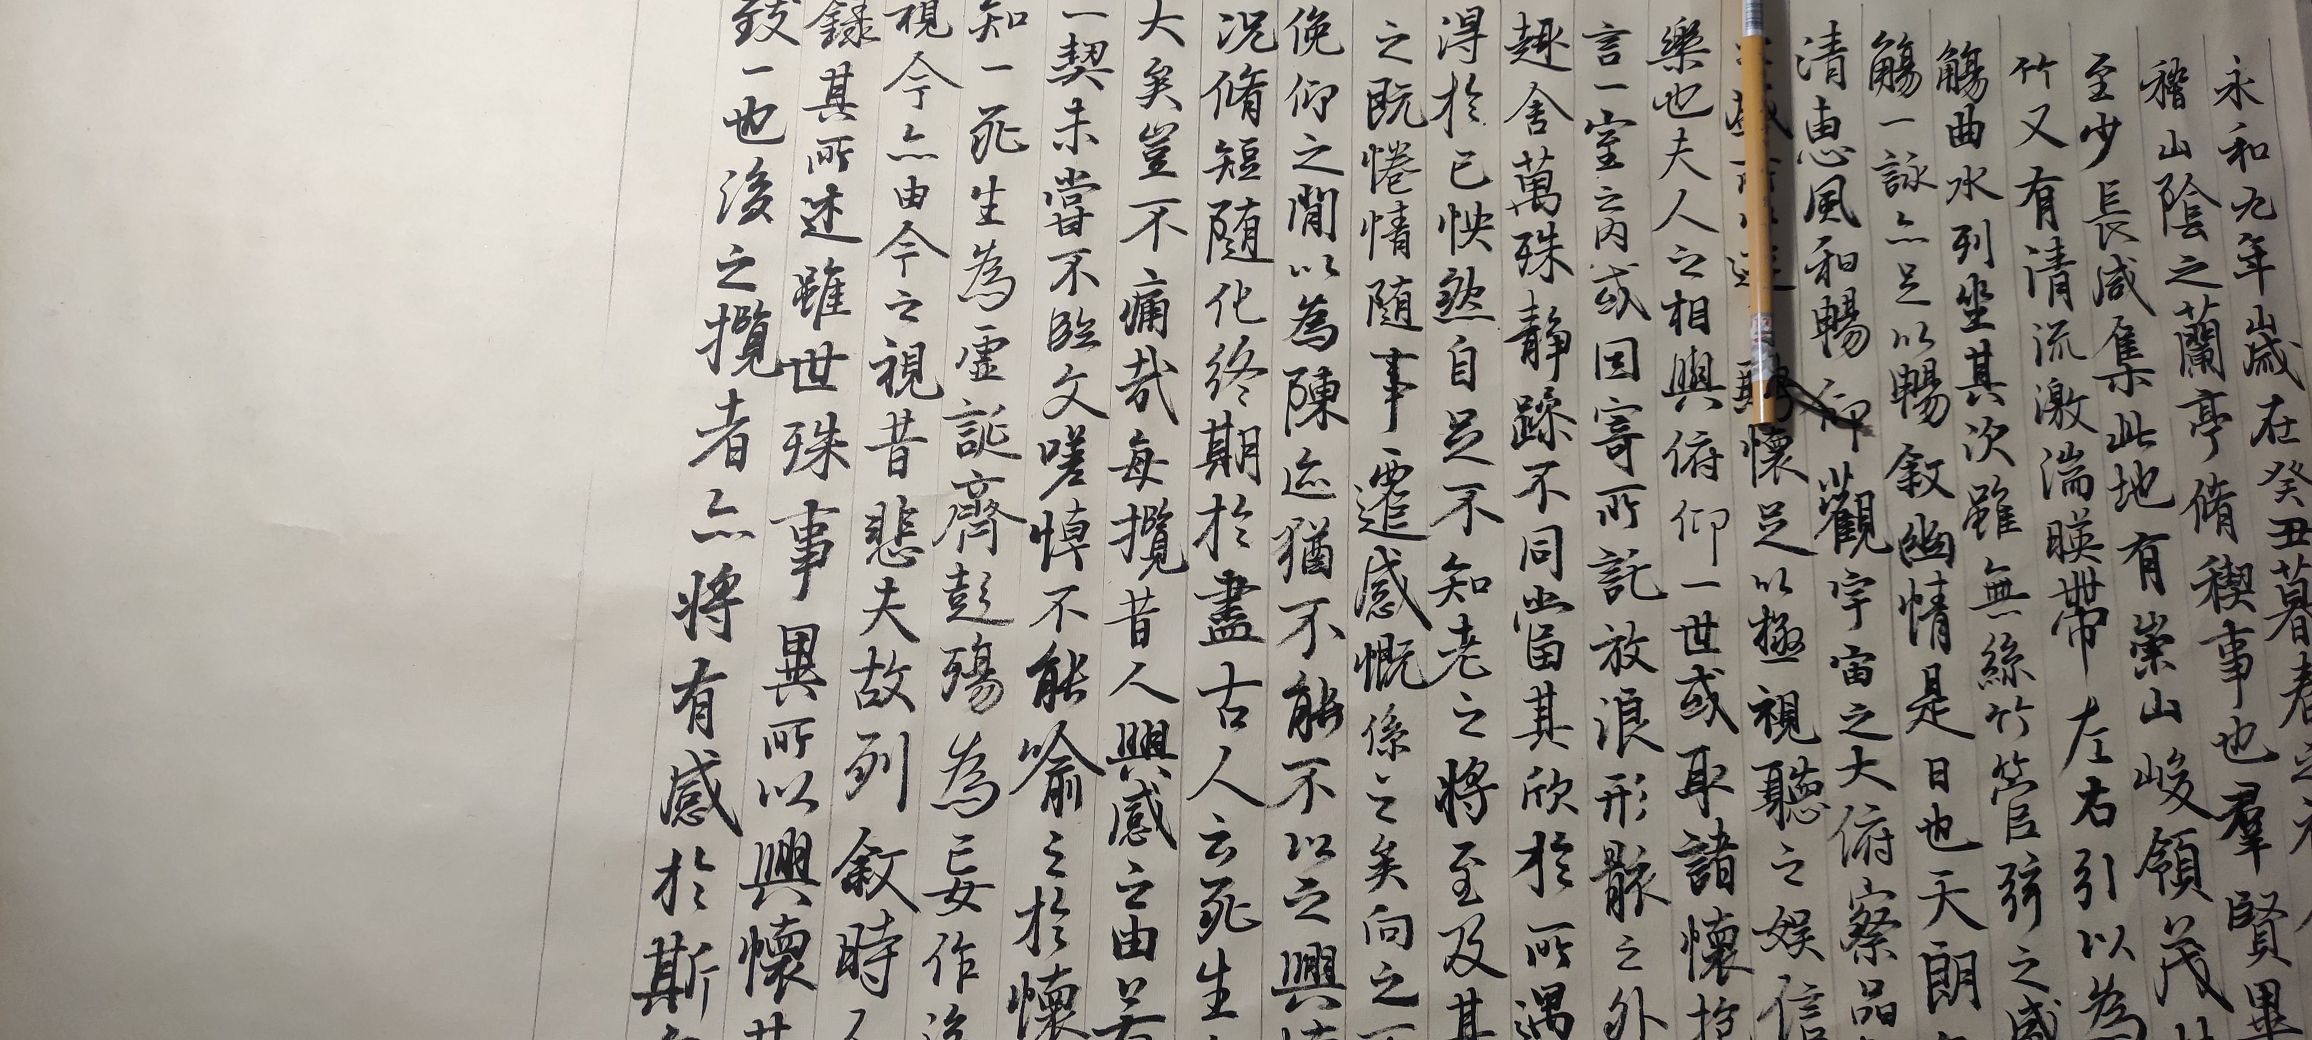 永和九年歲在癸丑暮春之初
稽山陰之蘭亭脩稧事也羣賢畢
至少長咸集此地有崇山峻領茂林
竹又有清流激湍暎帶左右引以為
觴曲水列坐其次雖無絲竹管弦之盛
觴一詠亦足以暢敘幽情是日也天朗
清惠風和暢仰觀宇宙之大俯察品
懷足以極視聽之娛信
樂也夫人之相與俯仰一世或取諸懷抱
言一室之內或因寄所託放浪形骸之外
趣舍萬殊靜躁不同當其欣於所遇
得於己怏然自足不知老之將至及其
之既惓情隨事遷感慨係之矣向之
俛仰之閒以為陳迹猶不能不以之興
況脩短隨化終期於盡古人云死生
大矣豈不痛哉每攬昔人興感之由若
一契未嘗不臨文嗟悼不能喻之於懷
知一死生為虛誕齊彭殤為妄作
視今亦由今之視昔悲夫故列敘時人
錄其所述雖世殊事異所以興懷其
致一也後之攬者亦將有感於斯